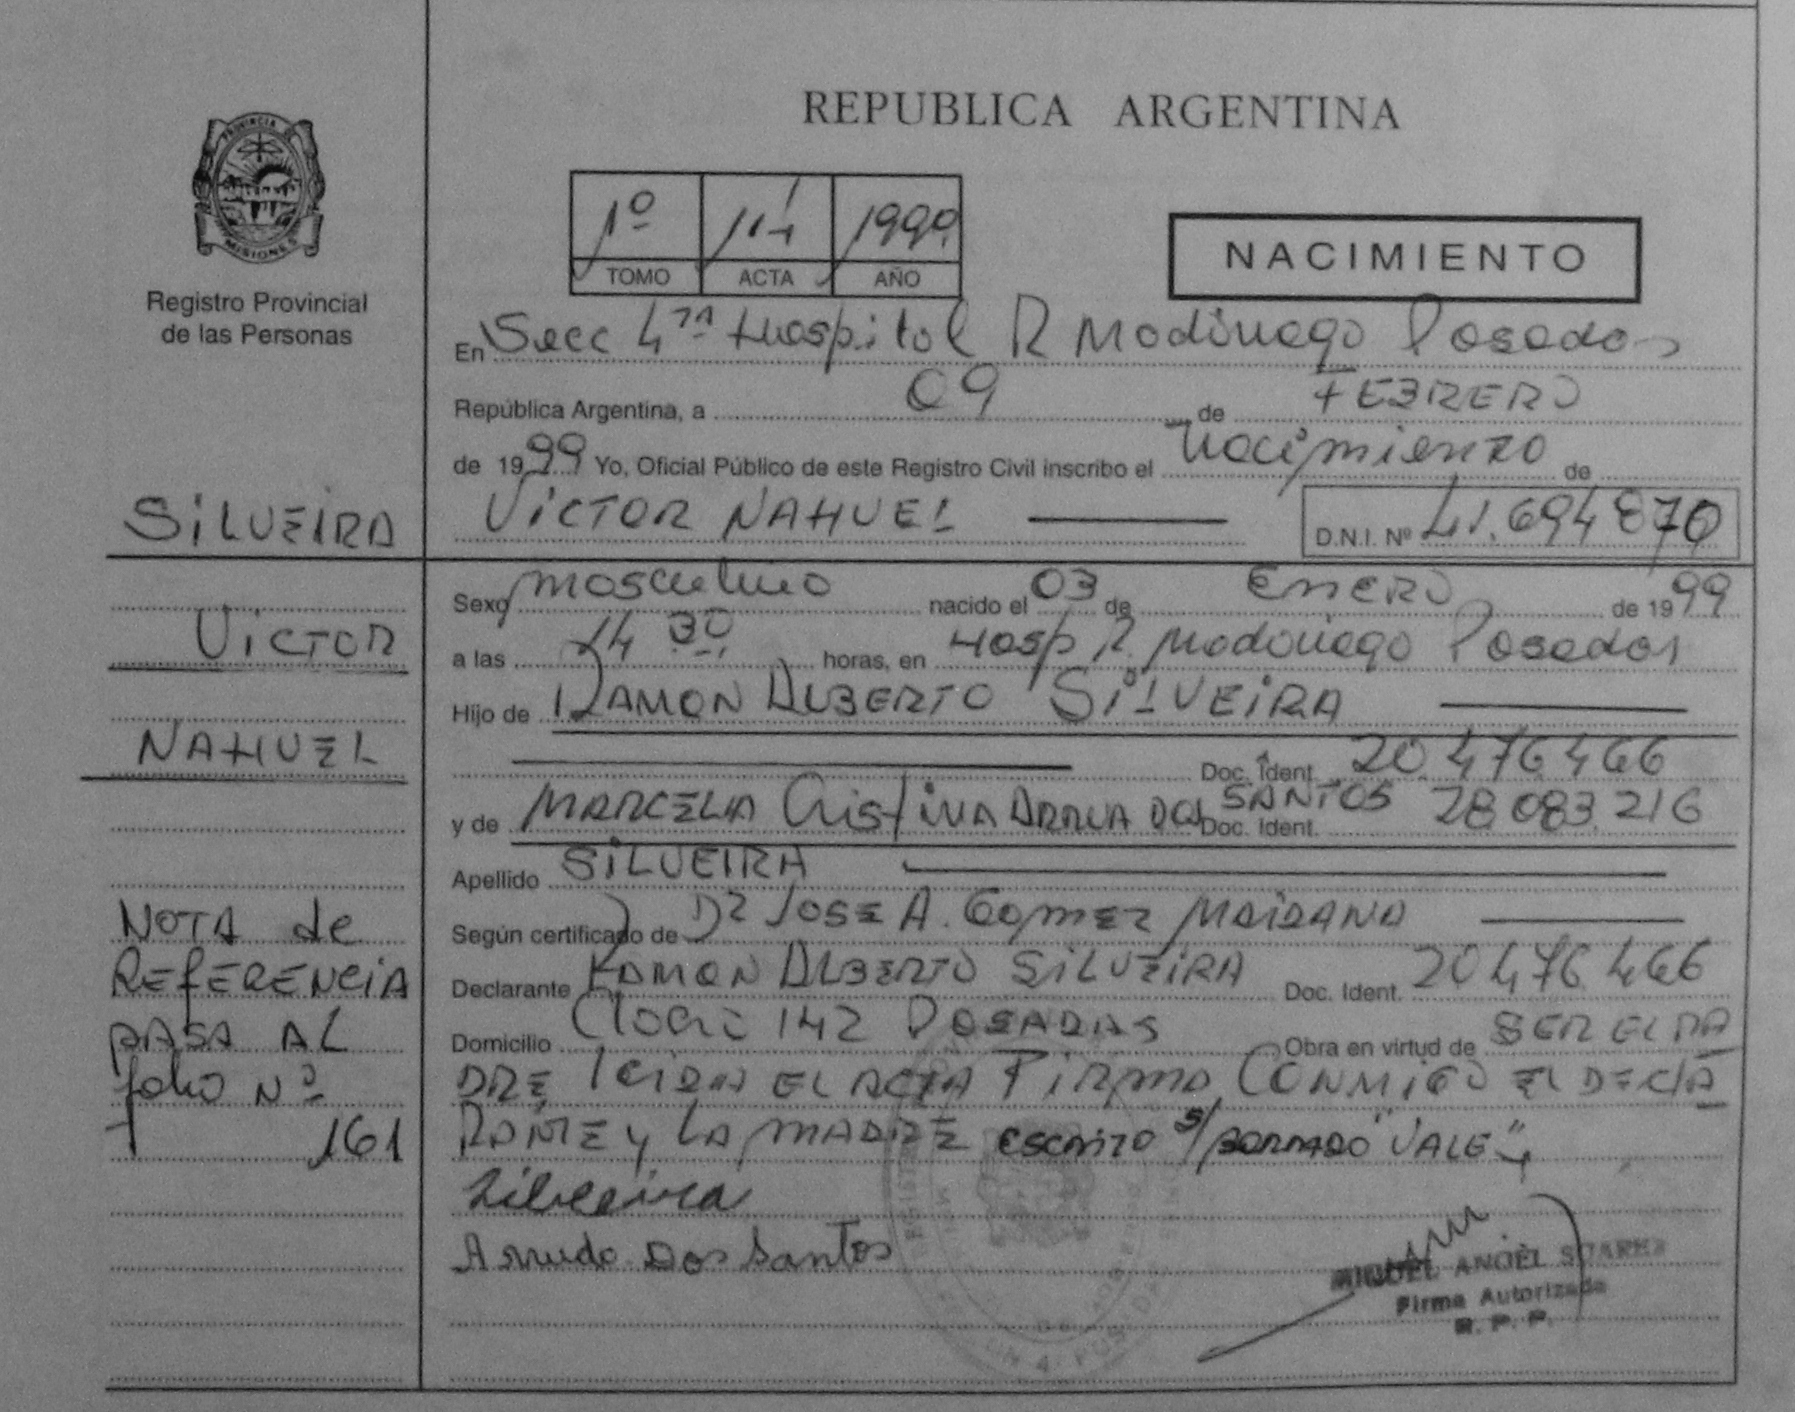 REPUBLICA ARGENTINA
PROVINCIA DE
MISIONES
Registro Provincial
de las Personas
1º 1999
TOMO ACTA AÑO
NACIMIENTO
En Secc 4ta Hospital R Madariaga Posadas
República Argentina, a 09 de FEBRERO
de 1999 Yo, Oficial Público de este Registro Civil inscribo el nacimiento de
SILVEIRA
VICTOR NAHUEL D.N.I. Nº 41.694870
Sexo masculino nacido el 03 de ENERO de 1999
VICTOR
a las 14 30 horas, en Hosp R. Madariaga Posadas
Hijo de RAMON ALBERTO SILVEIRA
NAHUEL
Doc. Ident. 20.476.466
y de MARCELA Cristina DOS SANTOS Doc. Ident. 28.083.216
Apellido SILVEIRA
Según certificado de Dr JOSE A. GOMEZ MAIDANA
Declarante RAMON ALBERTO SILVEIRA Doc. Ident. 20476.466
Domicilio 142 POSADAS Obra en virtud de SER EL PA
DRE leida EL ACTA FIRMA CONMIGO EL DECLA
RANTE y LA MADRE escrito s/borrado "VALE"
NOTA de
REFERENCIA
PASA AL
folio Nº
161
Silveira
Dos Santos
MIGUEL ANGEL SUAREZ
Firma Autorizada
R. P. P.